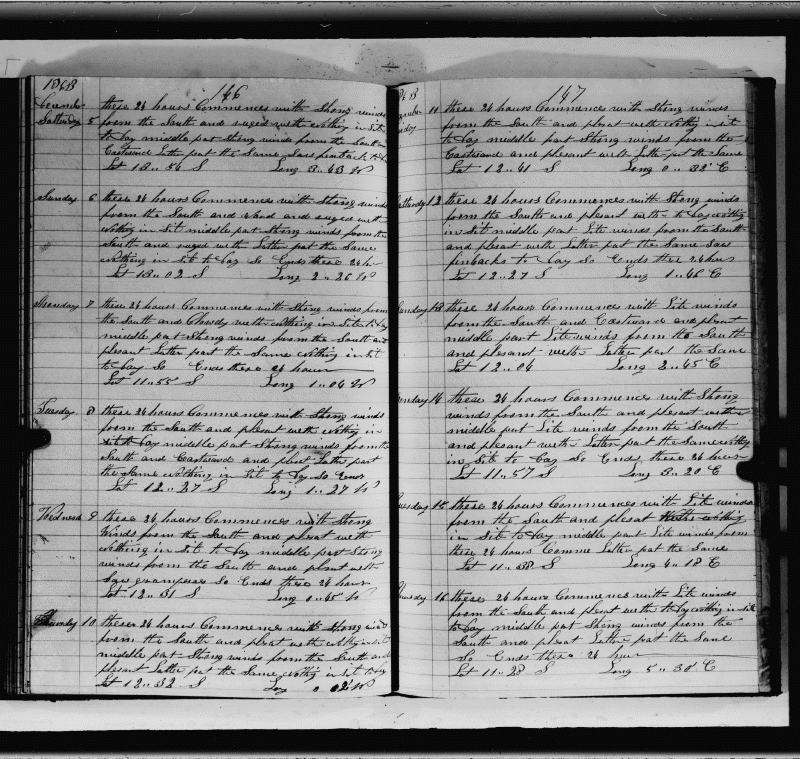 1868
146
December
Satturday 5 these 24 hours Commences with Strong winds
from the South and ruged with nothing in Sit
to Day middle part Strong winds from the South and
Eastward Latter part the Same Saw finback to Day
Lat 13.. 54 S Long 3.. 43 W
Sunday 6 these 24 hours Commences with Strong winds
from the South and and ruged with
nothing in Sit middle part Strong winds from the
South and ruged with Latter part the Same
nothing in Sit to Day So Ends these 24 hr
Lat 13.. 02 S Long 2.. 26 W
Monday 7 these 24 hours Commences with Strong winds from
the South and Clowdy with nothing in Site to Day
middle part Strong winds from the South and
plesant Latter part the Same nothing in Sit
to Day So Ends these 24 hours
Lat 11.. 55 S Long 1.. 04 W
Tuesday 8 these 24 hours Commences with Strong winds
from the South and plesant with nothing in
Sit to Day middle part Strong winds from the
South and Eastward and pleat Latter part
the Same nothing in Sit to Day So Ends
Lat 12.. 27 S Long 1.. 27 W
Wednesd 9 these 24 hours Commences with Strong
Winds from the South and pleat with
nothing in Sit to Day middle part Strong
winds from the South and plant with
Saw grampuse So Ends these 24 hours
Lat 12.. 31 S Long 1.. 45 W
Thursday 10 these 24 Hours Commences with Strong wind
from the South and pleat with nothing in Sit
middle part Strong winds from the South and
plesant Latter part the Same nothing in Sit to Day
Lat 12.. 32 S Log 0 02 W
147
11 these 24 hours Commences with Strong winds
from the South and pleat with nothing in Sit
to Day middle part Strong winds from the
Eastward and plesant with Latter part the Same
Lat 12.. 41 S Long 0.. 32 E
12 these 24 hours Commences with Strong winds
from the South and plesant with to Day nothing
in Sit middle part Lite winds from the South
and plesant with Latter part the Same Saw
finbacks to Day So Ends these 24 hours
Lat 12.. 27 S Long 1.. 46 E
Sunday 13 these 24 hours Commences with Lite winds
from the South and Eastward and pleat
middle part Lite winds from the South
and plesant with Latter part the Same
Lat 12.. 04 Long 2.. 45 E
14 these 24 hours Commences with Strong
winds from the South and plesent with
middle part Lite winds from the South
and plesent with Latter part the Same nothing
in Sit to Day So Ends these 24 hours
Lat 11.. 57 S Long 3.. 20 E
15 these 24 hours Commences with Lite winds
from the South and plesat nothing
in Sit to Day middle part Lite winds from
these 24 hours Comme Latter part the Same
Lat 11.. 38 S Long 4.. 18 E
16 these 24 hours Commences with Lite winds
from the South and pleat with to Day nothing in Sit
to Day middle part Strong winds from the
South and pleat Latter part the Same
So Ends these 24 hours
Lat 11.. 28 S Long 5.. 30 E